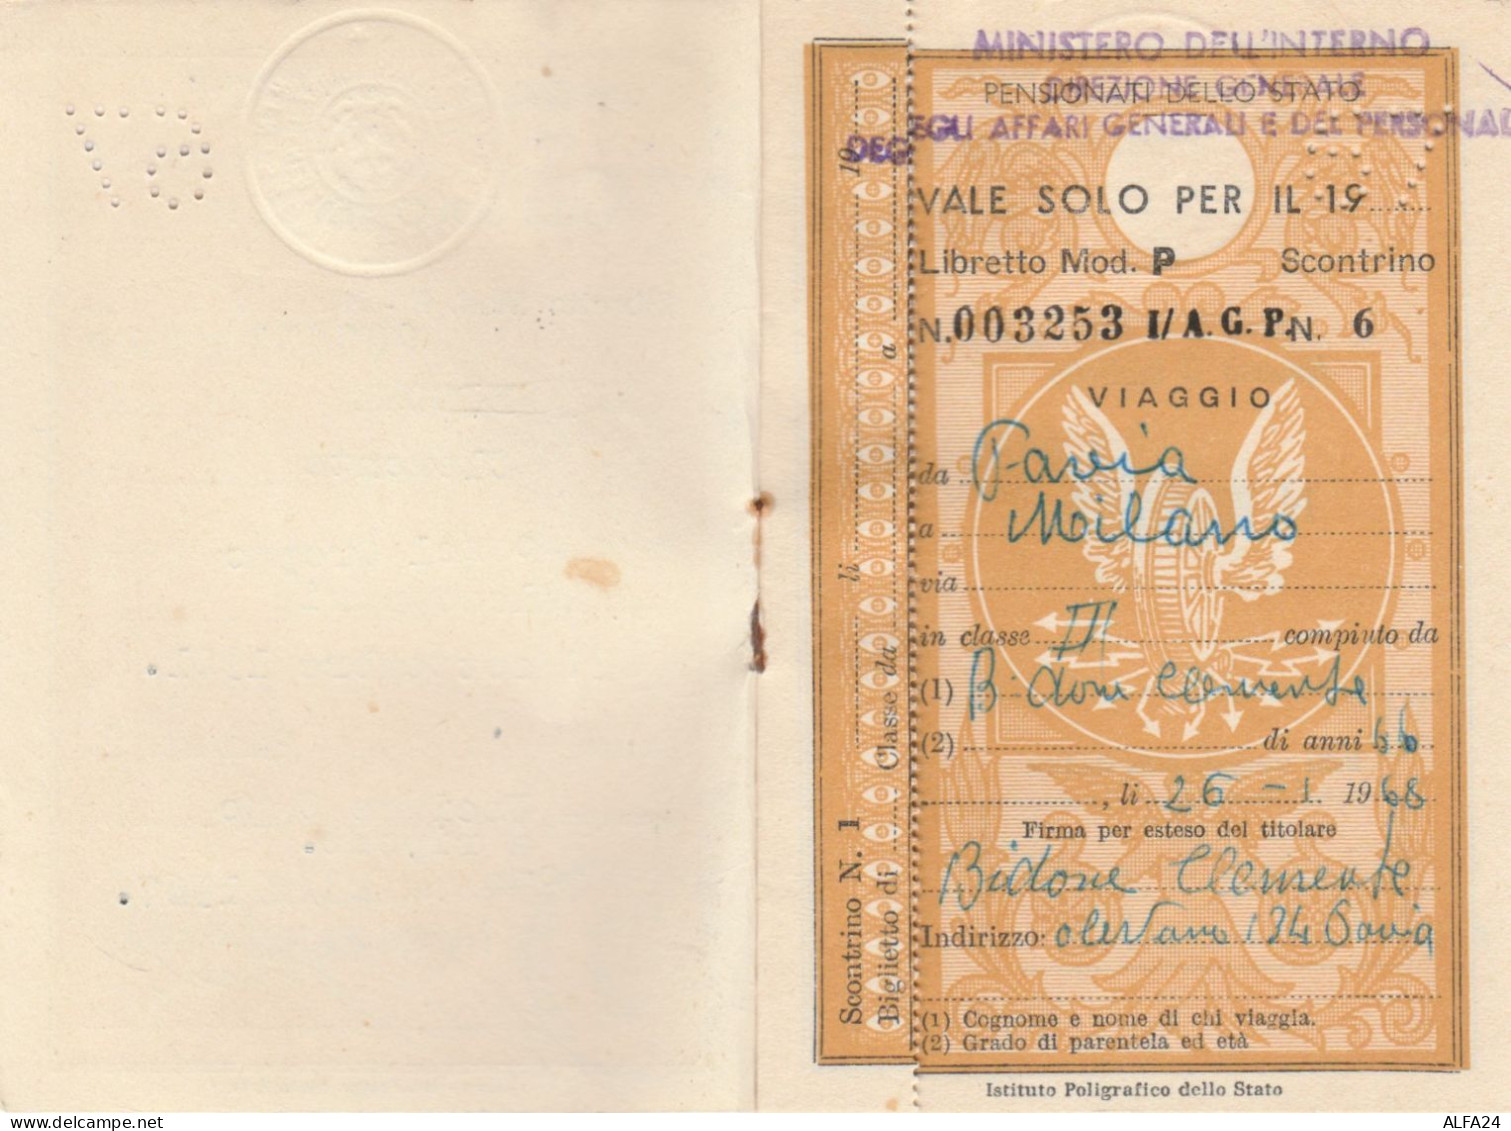 MINISTERO DELL'INTERNO
DIREZIONE GENERALE
PENSIONATI DELLO STATO
DEGLI AFFARI GENERALI E DEL PERSONAL
VALE SOLO PER IL 19
Libretto Mod. P Scontrino
N. 003253 I/A.G.P. N. 6
VIAGGIO
da Pavia
a Milano
via
in classe III compiuto da
(1) Bidone Clemente
(2) di anni 66
, li 26 - 1 1968
Firma per esteso del titolare
Bidone Clemente
Indirizzo: Olevano 124 Pavia
(1) Cognome e nome di chi viaggia.
(2) Grado di parentela ed età
Istituto Poligrafico dello Stato
Scontrino N. 1 li 19
Biglietto di Classe da a
67
ALFA24